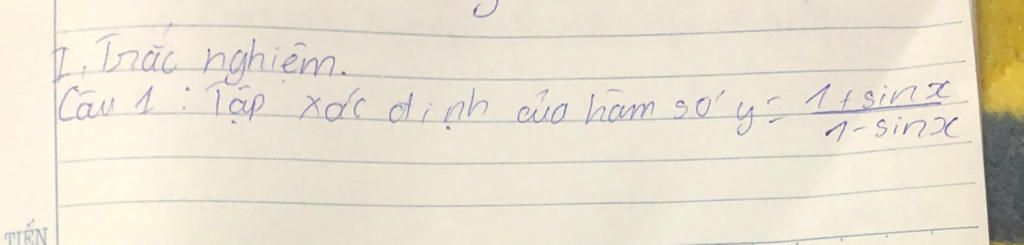 I, Trắc nghiệm.
Câu 1 : Tập xác định của hàm số y = \frac{1+sinx}{1-sinx}
TIẾN